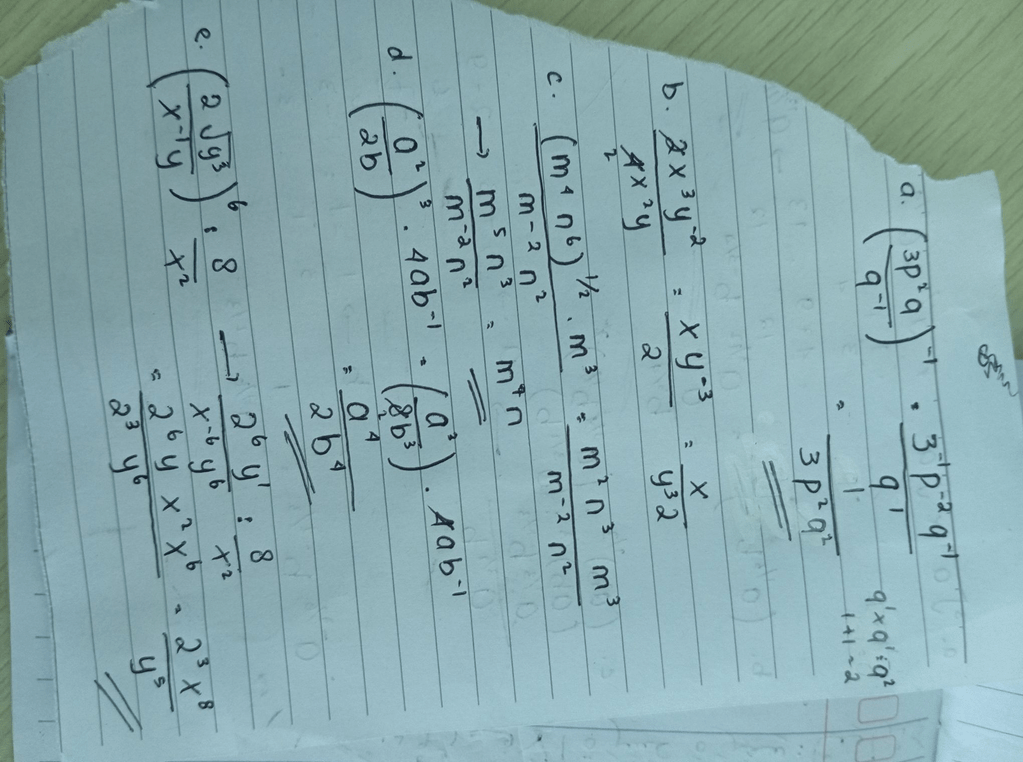 a. (3p²q / q⁻¹)⁻¹ = 3⁻¹p⁻²q⁻¹ / q¹
q¹ × q¹ = q²
1+1 = 2
= 1 / 3p²q²
b. 2x³y⁻² / 4x²y = xy⁻³ / 2 = x / y³2
2
c. (m⁴ n⁶)^1/2 . m³ / m⁻² n² = m² n³ m³ / m⁻² n²
→ m⁵ n³ / m⁻² n² = m⁷ n
d. (a² / 2b)³ . 4ab⁻¹ = (a³ / 8b³) . 4ab⁻¹
= a⁴ / 2b⁴
e. (2√y³ / x⁻¹y)⁶ : 8 / x² → 2⁶ y¹ / x⁻⁶ y⁶ : 8 / x²
= 2⁶ y x² x⁶ / 2³ y⁶ = 2³ x⁸ / y⁵